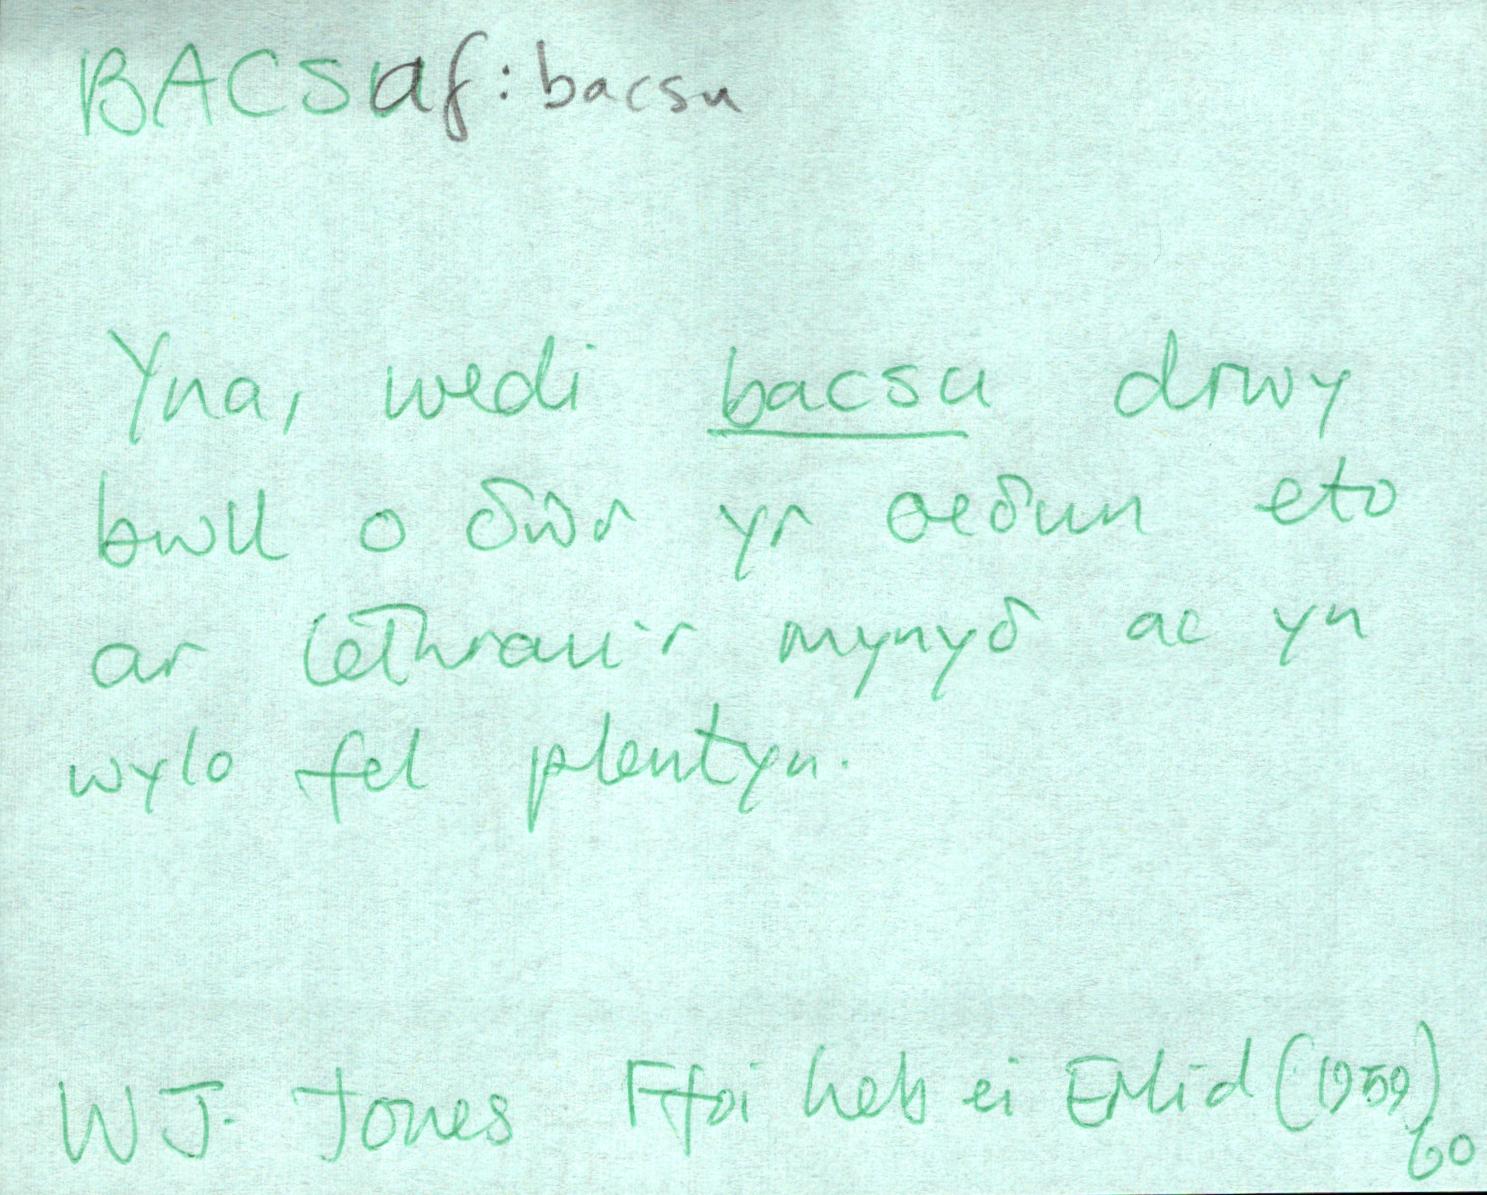 BACSaf: bacsu
Yna, wedi bacsu drwy
bwll o δŵr yr oeδwn eto
ar lethrau'r mynyδ ac yn
wylo fel plentyn.
W J. Jones Ffoi heb ei Erlid (1959)
60